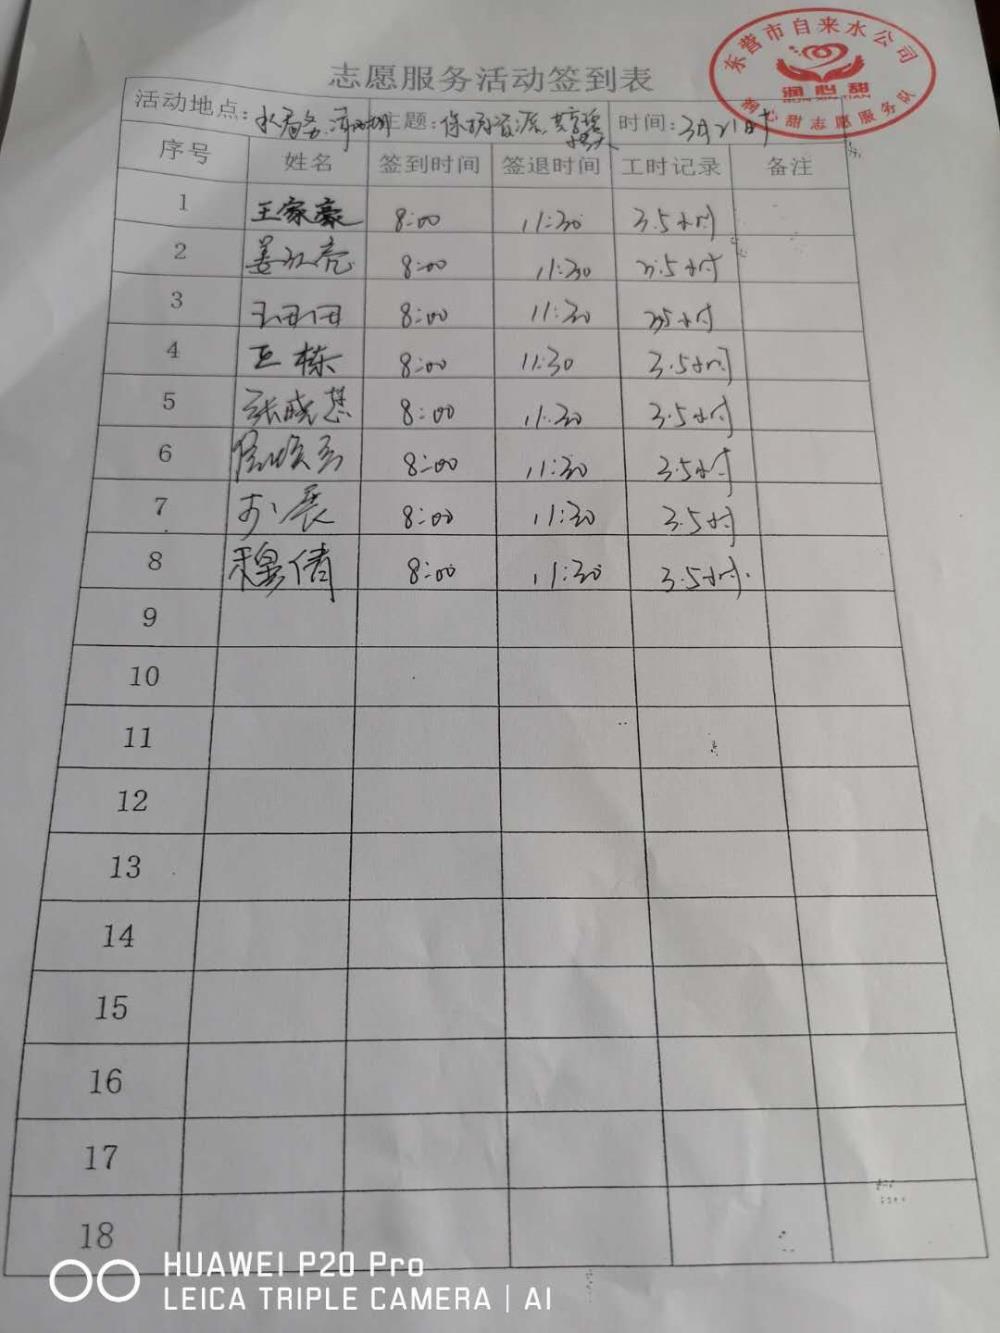 东营市自来水公司
润心甜
RUN XIN TIAN
润心甜志愿服务队
志愿服务活动签到表
活动地点： 主题：保护资源 时间：3月21日
序号 姓名 签到时间 签退时间 工时记录 备注
1 王家豪 8:00 11:30 3.5小时
2 8:00 11:30 3.5小时
3 8:00 11:30 3.5小时
4 王栋 8:00 11:30 3.5小时
5 张晓慧 8:00 11:30 3.5小时
6 8:00 11:30 3.5小时
7 8:00 11:30 3.5小时
8 穆倩 8:00 11:30 3.5小时
9
10
11
12
13
14
15
16
17
18
HUAWEI P20 Pro
LEICA TRIPLE CAMERA | AI